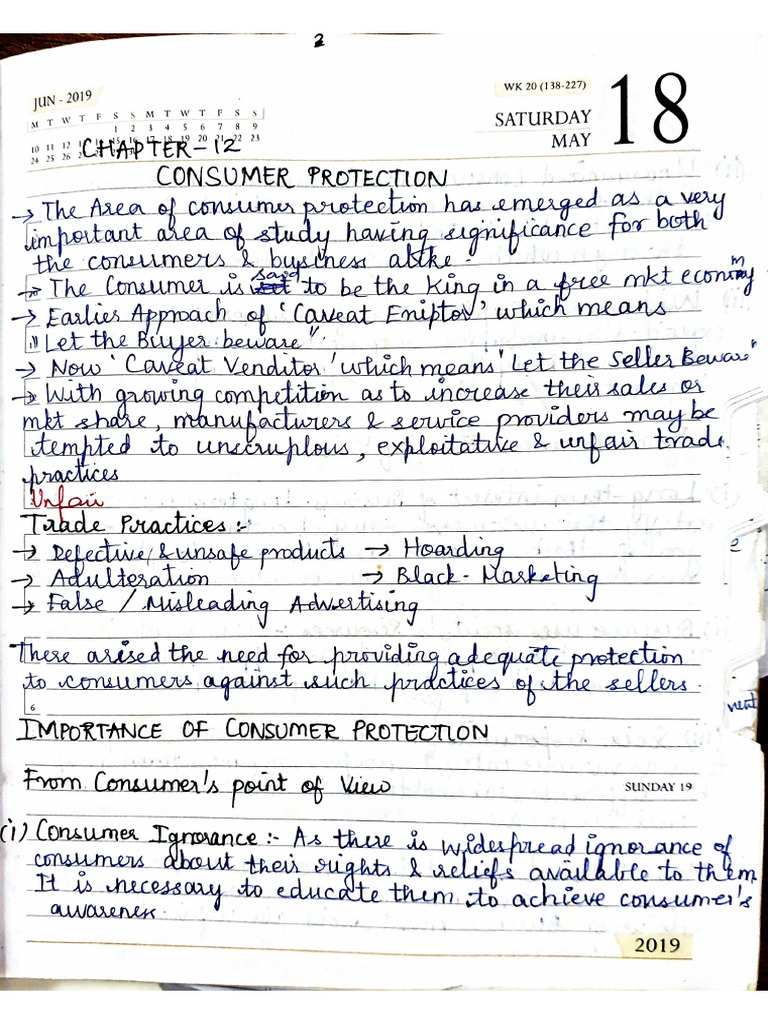 2
JUN - 2019
WK 20 (138-227)
SATURDAY
MAY
18
M T W T F S S M T W T F S S
1 2 3 4 5 6 7 8 9
10 11 12 18 19 20 21 22 23
24 25 26
CHAPTER-12
CONSUMER PROTECTION
→ The Area of consumer protection has emerged as a very
important area of study having significance for both
the consumers & business alike.
→ The Consumer is said to be the King in a free mkt economy
→ Earlier Approach of 'Caveat Emptor' which means
"Let the Buyer beware".
→ Now 'Caveat Venditor' which means "Let the Seller Beware"
→ With growing competition as to increase their sales or
mkt share, manufacturers & service providers may be
tempted to unscruplous, exploitative & unfair trade
practices
Unfair
Trade Practices :-
→ Defective & unsafe products → Hoarding
→ Adulteration → Black-Marketing
→ False / Misleading Advertising
There arised the need for providing adequate protection
to consumers against such practices of the sellers.
6
IMPORTANCE OF CONSUMER PROTECTION
From Consumer's point of View
SUNDAY 19
(i) Consumer Ignorance :- As there is widespread ignorance of
consumers about their rights & reliefs available to them
It is necessary to educate them to achieve consumer's
awareness.
2019